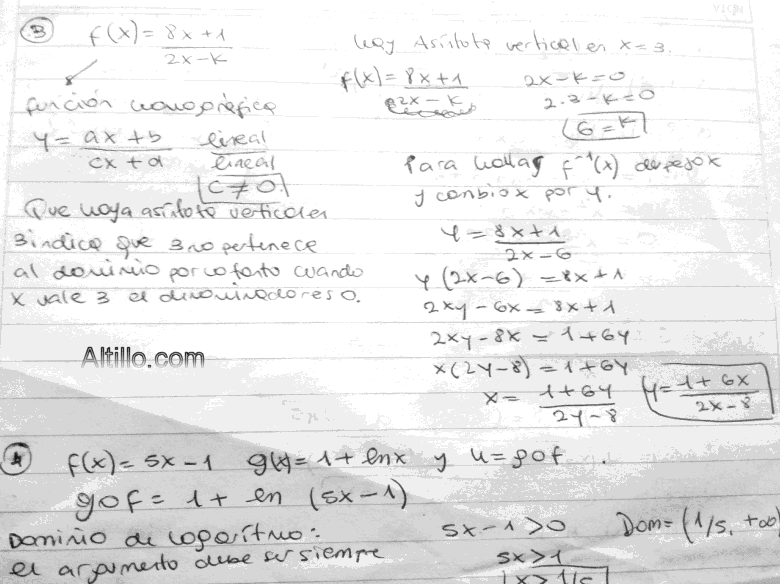 3 f(x) = 8x+1 / 2x-k
función homográfica
y = ax+b / cx+d lineal / lineal
c ≠ 0
Que haya asíntota vertical en
3 indica que 3 no pertenece
al dominio por lo tanto cuando
x vale 3 el denominador es 0.
Hay Asíntota vertical en x=3.
f(x) = 8x+1 / 2x-k
2x-k=0
2.3-k=0
6=k
Para hallar f⁻¹(x) despejo x
y cambio x por y.
y = 8x+1 / 2x-6
y(2x-6) = 8x+1
2xy-6x = 8x+1
2xy-8x = 1+6y
x(2y-8) = 1+6y
x = 1+6y / 2y-8
y = 1+6x / 2x-8
Altillo.com
4 f(x) = 5x-1 g(x) = 1+lnx y u = gof.
gof = 1+ln (5x-1)
Dominio de logaritmo:
el argumento debe ser siempre
5x-1>0
5x>1
x>1/5
Dom = (1/5, +∞)